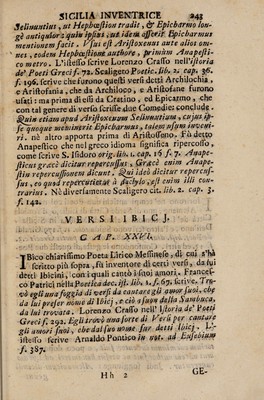 SICILIA INVENTRICE 243
Selinuntius, ut Hephæstion tradit, & Epicharmo lon-
gè antiquior: quin ipsius, ut idem asserit Epicharmus
mentionem facit. Usus est Aristoxenus ante alios om-
nes, eodem Hephæstione authore, primùm Anapesti-
co metro. L'istesso scrive Lorenzo Crasso nell'istoria
de' Poeti Greci f. 72. Scaligero Poetic. lib. 2. cap. 36.
f. 196. scrive che furono questi versi detti Archilochia,
e Aristofania, che da Archiloco, e Aristofane furono
usati: ma prima di essi da Cratino, ed Epicarmo, che
con tal genere di verso scrisse due Comedie: conclude.
Quin etiam apud Aristoxenum Selinuntium, cujus ip-
se quoque meminerit Epicharmus, talem usum inveni-
ri. nè altro apporta prima di Aristosseno. Fù detto
Anapestico che nel greco idioma significa ripercosso,
come scrive S. Isidoro orig. lib. 1. cap. 16 f. 7. Anape-
sticus græcè dicitur repercussus. Græci enim Anape-
stin repercussionem dicunt. Qui ideò dicitur repercus-
sus, eo quod repercutitur à dactylo, est enim illi con-
trarius. Nè diversamente Scaligero cit. lib. 2. cap. 3.
f. 142.
VERSI IBICJ.
CAP. XXVI.
IBico chiarissimo Poeta Lirico Messinese, di cui s'hà
scritto più sopra, fù inventore di certi versi, da lui
detti Ibicini, con i quali cantò i suoi amori. Frances-
co Patrici nella Poetica dec. ist. lib. 1. f. 67. scrive. Tro-
vò egli una foggia di versi da cantare gli amor suoi, che
da lui preser nome di Ibici, e ciò a suon della Sambuca,
da lui trovata. Lorenzo Crasso nell' Istoria de' Poeti
Greci f. 292. Egli trovò una sorte di Versi per cantare
gli amori suoi, che dal suo nome fur detti Ibici. L'-
istesso scrive Arnaldo Pontico in not. ad Eusebium
f. 387.
Hh 2 GE-